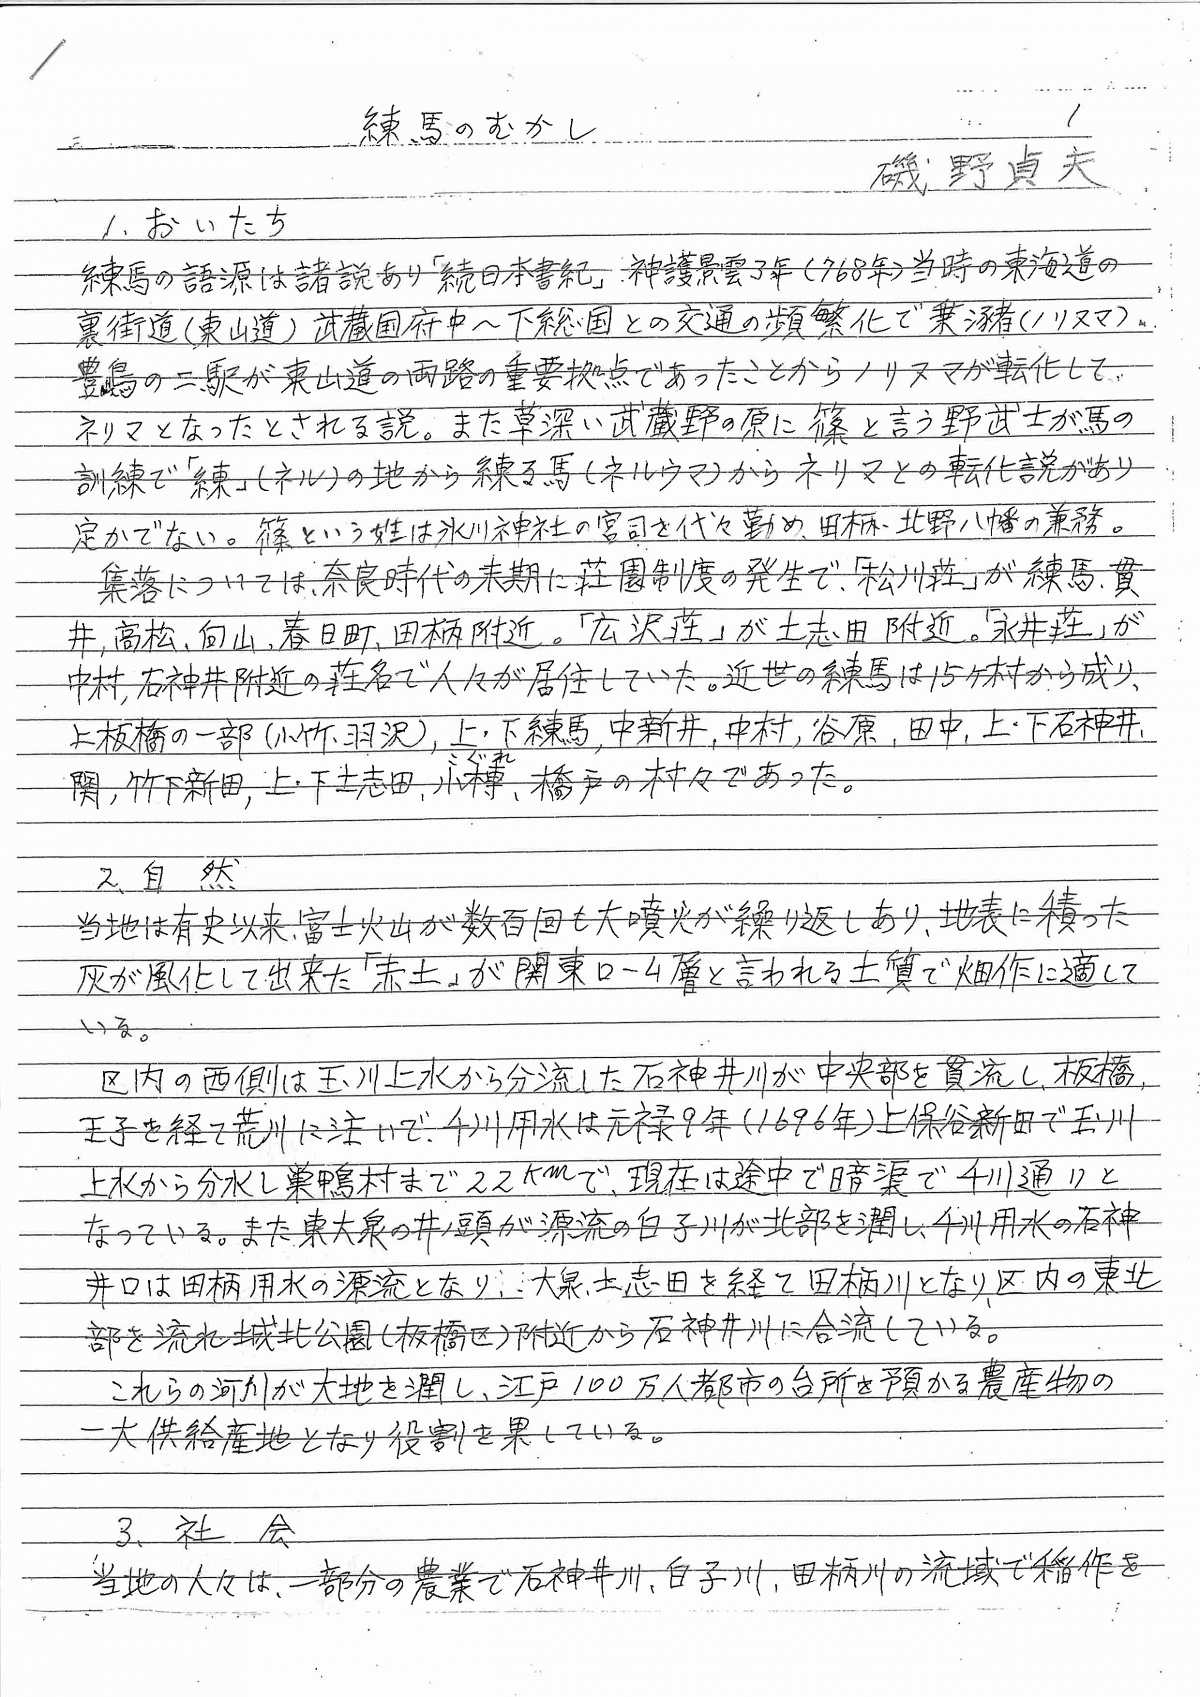 練馬のむかし
1
磯野貞夫
1. おいたち
練馬の語源は諸説あり「続日本書紀」神護景雲3年(768年)当時の東海道の
裏街道(東山道)武蔵国府中へ下総国との交通の頻繁化で乗潴(ノリヌマ)、
豊島の二駅が東山道の両路の重要拠点であったことからノリヌマが転化して
ネリマとなったとされる説。また草深い武蔵野の原に篠と言う野武士が馬の
訓練で「練」(ネル)の地から練る馬(ネルウマ)からネリマとの転化説があり
定かでない。篠という姓は氷川神社の宮司を代々勤め、田柄、北野八幡の兼務。
集落については、奈良時代の末期に荘園制度の発生で、「松川荘」が練馬、貫
井,高松、向山,春日町、田柄附近。「広沢荘」が土志田附近。「永井荘」が
中村,石神井附近の荘名で人々が居住していた。近世の練馬は15ヶ村から成り、
上板橋の一部(小竹、羽沢),上・下練馬,中新井,中村,谷原,田中,上・下石神井、
こぐれ
関,竹下新田,上・下土志田、小榑、橋戸の村々であった。
2、自然
当地は有史以来、富士火山が数百回も大噴火が繰り返しあり、地表に積った
灰が風化して出来た「赤土」が関東ローム層と言われる土質で畑作に適して
いる。
区内の西側は玉川上水から分流した石神井川が中央部を貫流し、板橋,
王子を経て荒川に注いで、千川用水は元禄9年(1696年)上保谷新田で玉川
上水から分水し巣鴨村まで22kmで、現在は途中で暗渠で千川通りと
なっている。また東大泉の井ノ頭が源流の白子川が北部を潤し、千川用水の石神
井口は田柄用水の源流となり、大泉、土志田を経て田柄川となり、区内の東北
部を流れ城北公園(板橋区)附近から石神井川に合流している。
これらの河川が大地を潤し、江戸100万人都市の台所を預かる農産物の
一大供給産地となり役割を果している。
3、社会
当地の人々は、一部分の農業で石神井川、白子川,田柄川の流域で稲作を